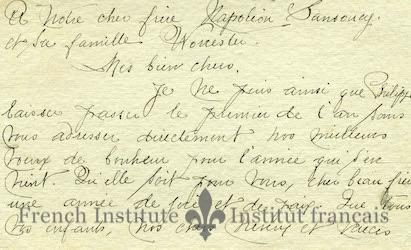 A Notre cher frère Napoléon Sansoucy
et Sa famille Worcester.
Mes bien chers.
Je ne puis ainsi que Philippe
laisser passer le premier de l'an sans
vous adresser directement nos meilleurs
voeux de bonheur pour l'année qui s'en
vient. Qu'elle soit pour vous, cher beau frère
une année de joie et de paix. Que vous
vos enfants, nos chers neveux et nièces
French Institute Institut français